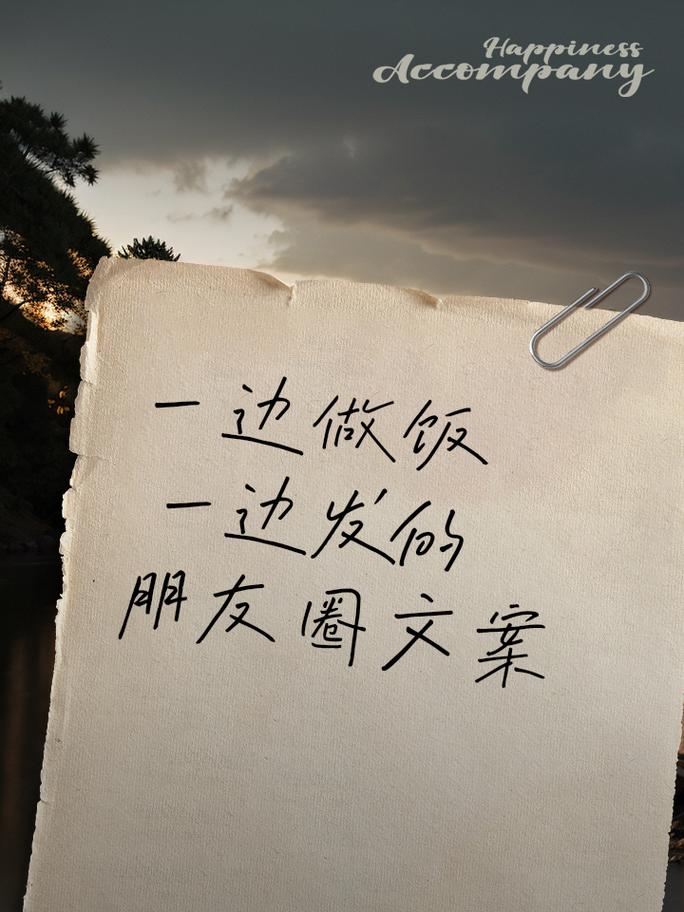 Happiness
Accompany
一边做饭
一边发的
朋友圈文案